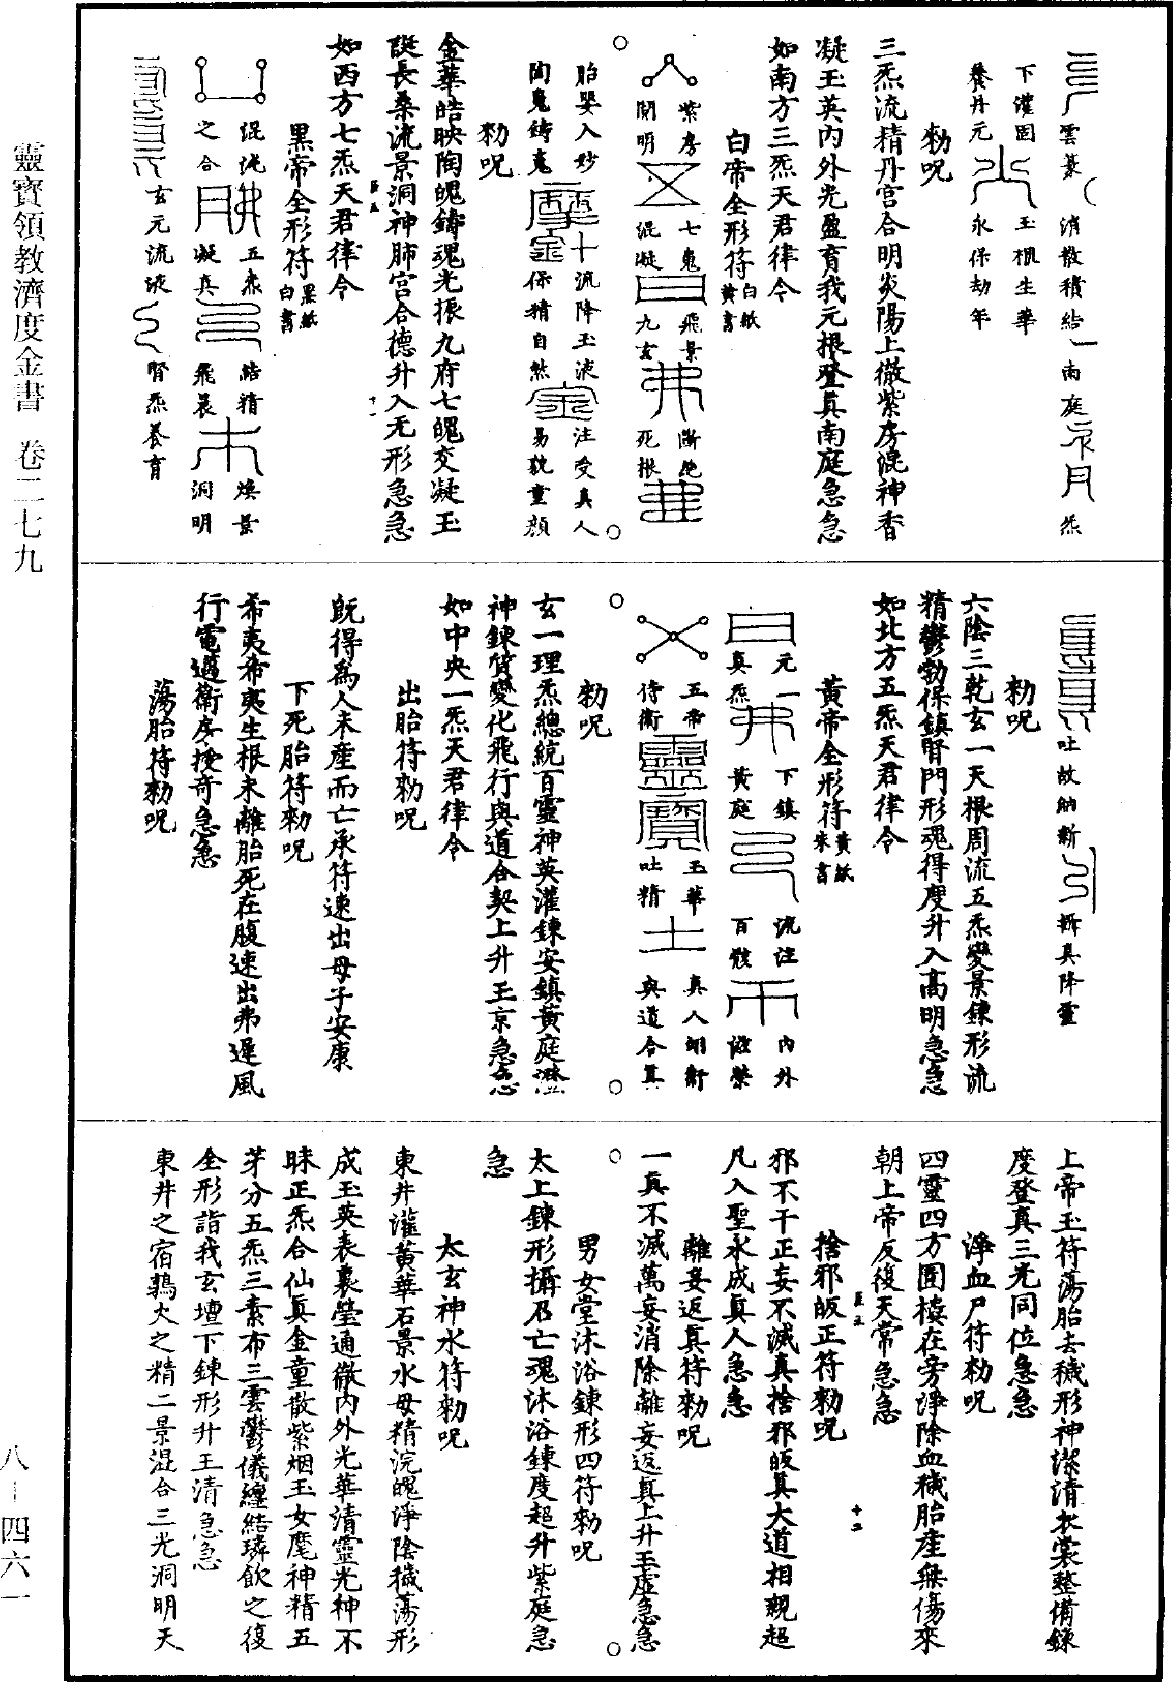 靈寶領教濟度金書　卷二七九
八―四六一
雲篆　消散積結　南庭　炁
下灌固　玉根生華
養丹元　永保劫年
勑呪
三炁流精丹宮合明炎陽上徹紫房混神杳
凝玉英內外光盈育我元根登真南庭急急
如南方三炁天君律令
白帝全形符白紙黃書
紫房　七鬼　飛景　斷絕
開明　混凝　九玄　死根
胎嬰入妙　十流降玉液　注受真人
陶鬼鑄魂　保精自然　易貌童顏
勑呪
金華皓映陶魄鑄魂光振九府七魄交凝玉
誕長桑流景洞神肺宮合德升入无形急急
如西方七炁天君律令
黑帝全形符黑紙白書
混沌　五炁　結精　煥景
之合　凝真　飛晨　洞明
玄元流液　腎炁養育
吐故納新　攝真降靈
勑呪
六陰三乾玄一天根周流五炁變景鍊形流
精鬱勃保鎮腎門形魂得度升入高明急急
如北方五炁天君律令
黃帝全形符黃紙朱書
元一　下鎮　流注　內外
真炁　黃庭　百骸　滋榮
五帝　玉華　真人翊衛
侍衛　吐精　與道合真
勑呪
玄一理炁總統百靈神英灌鍊安鎮黃庭濫
神鍊質變化飛行與道合契上升玉京急急
如中央一炁天君律令
出胎符勑呪
既得為人未產而亡承符速出母子安康
下死胎符勑呪
希夷希夷生根未離胎死在腹速出弗遲風
行電邁衛房按奇急急
蕩胎符勑呪
上帝玉符蕩胎去穢形神潔清衣裳整備鍊
度登真三光同位急急
淨血尸符勑呪
四靈四方圊榱在旁淨除血穢胎產無傷來
朝上帝反復天常急急
捨邪皈正符勑呪
邪不干正妄不滅真捨邪皈真大道相親超
凡入聖永成真人急急
離妄返真符勑呪
一真不滅萬妄消除離妄返真上升玉虛急急
男女堂沐浴鍊形四符勑呪
太上鍊形攝召亡魂沐浴鍊度超升紫庭急
急
太玄神水符勑呪
東井灌黃華石景水母精浣魄淨陰穢蕩形
成玉英表裏瑩通徹內外光華清靈光神不
昧正炁合仙真金童散紫烟玉女麾神精五
芽分五炁三素布三雲鬱儀纏結璘飲之復
全形詣我玄壇下鍊形升玉清急急
東井之宿鶉火之精二景混合三光洞明天